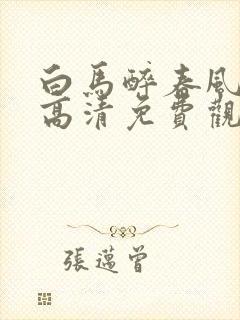 白馬醉春風
高清免費觀
張邁曾